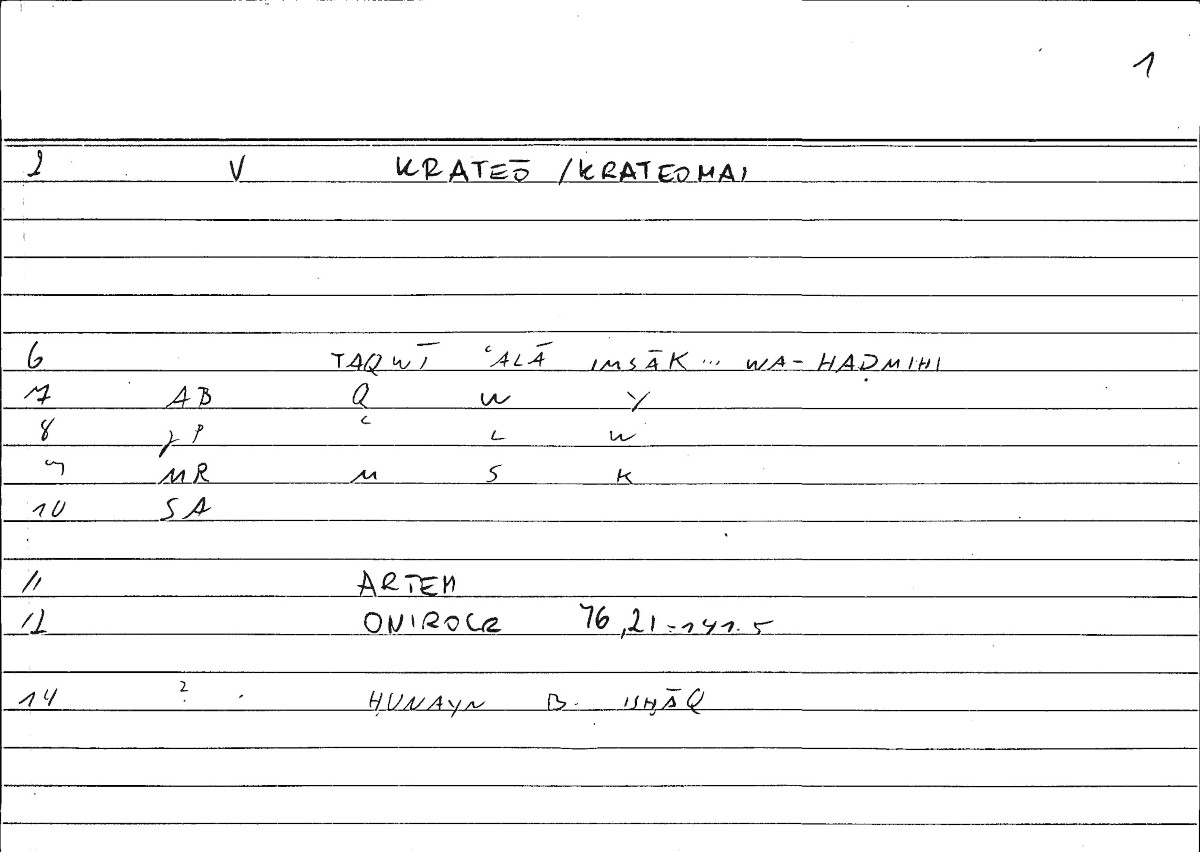 1
2 V KRATEŌ /KRATEOMAI
6 TAQWĪ ʿALĀ IMSĀK ... WA-HAḌMIHI
7 AB Q W Y
8 ʿ L W
9 MR M S K
10 SA
11 ARTEM
12 ONIROCR 76,21=141.5
14 ? HUNAYN B. ISḤĀQ